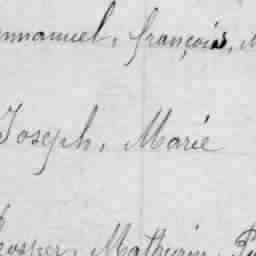 mmanuel, françois, M
Joseph, Marie
Prosper, Mathurin, Pi